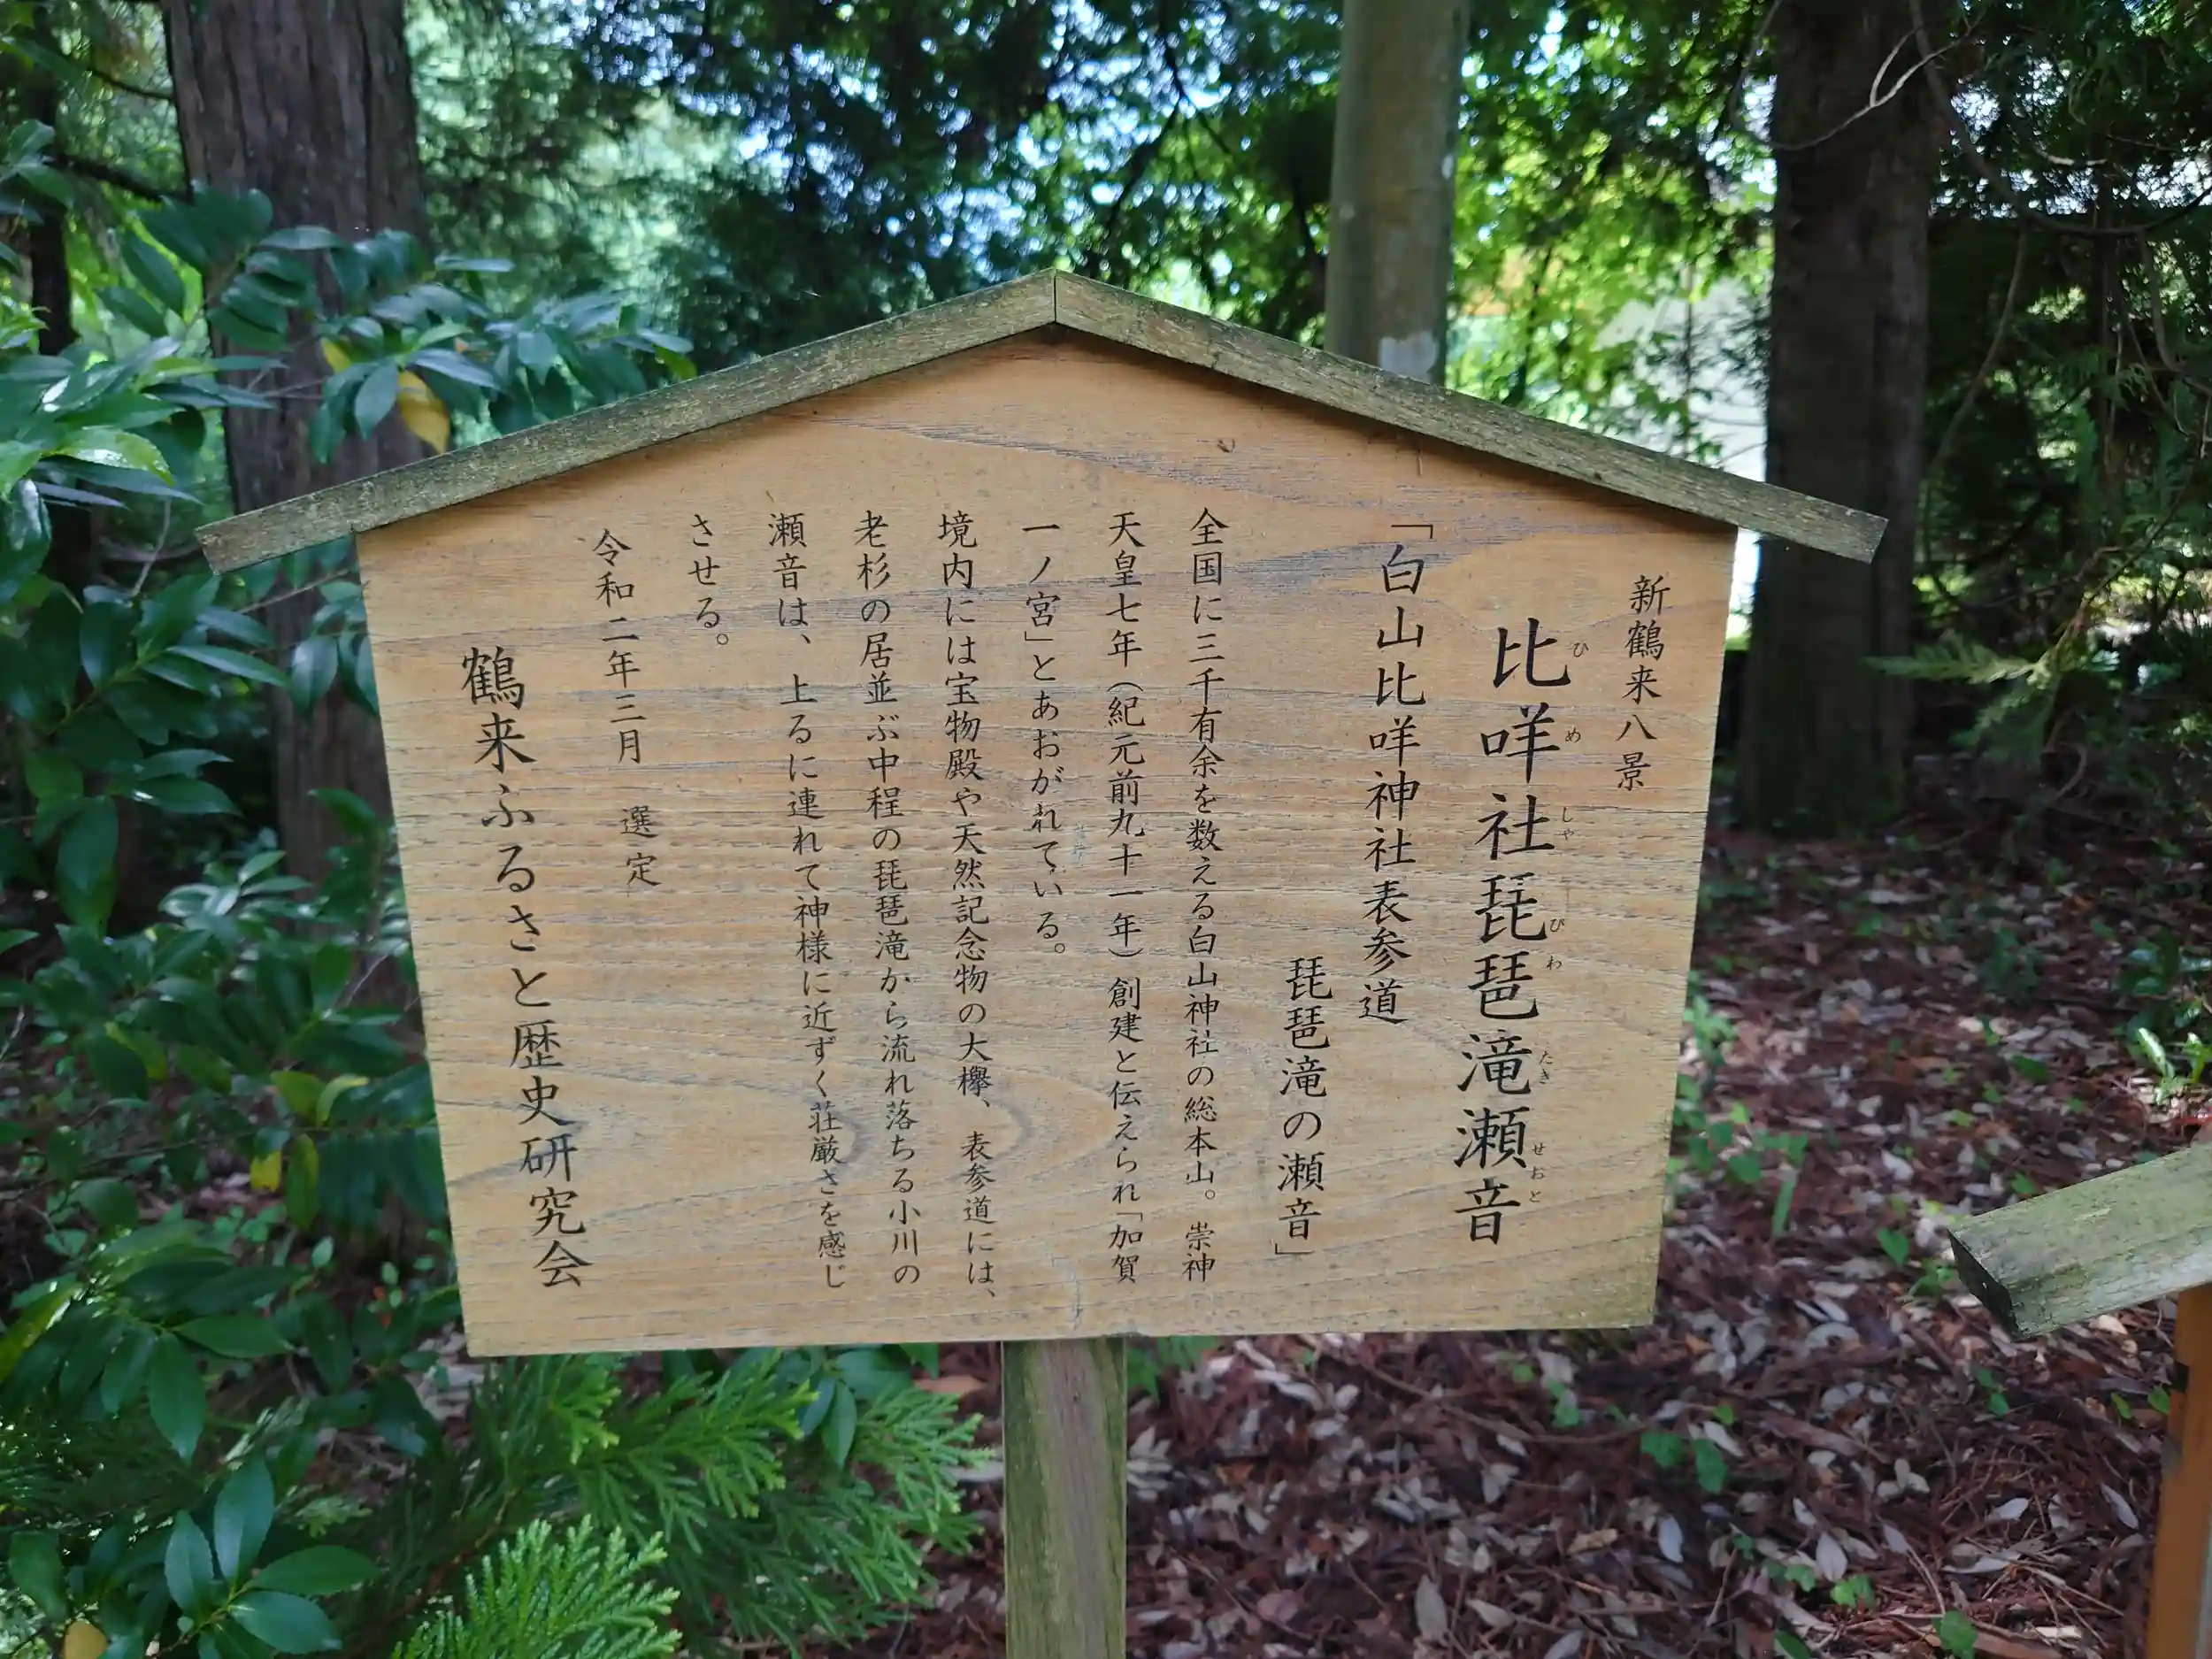 新鶴来八景
比咩社琵琶滝瀬音
ひめしゃびわたきせおと
「白山比咩神社表参道
琵琶滝の瀬音」
全国に三千有余を数える白山神社の総本山。崇神
天皇七年(紀元前九十一年)創建と伝えられ「加賀
一ノ宮」とあおがれている。
境内には宝物殿や天然記念物の大欅、表参道には、
老杉の居並ぶ中程の琵琶滝から流れ落ちる小川の
瀬音は、上るに連れて神様に近ずく荘厳さを感じ
させる。
令和二年三月 選定
鶴来ふるさと歴史研究会